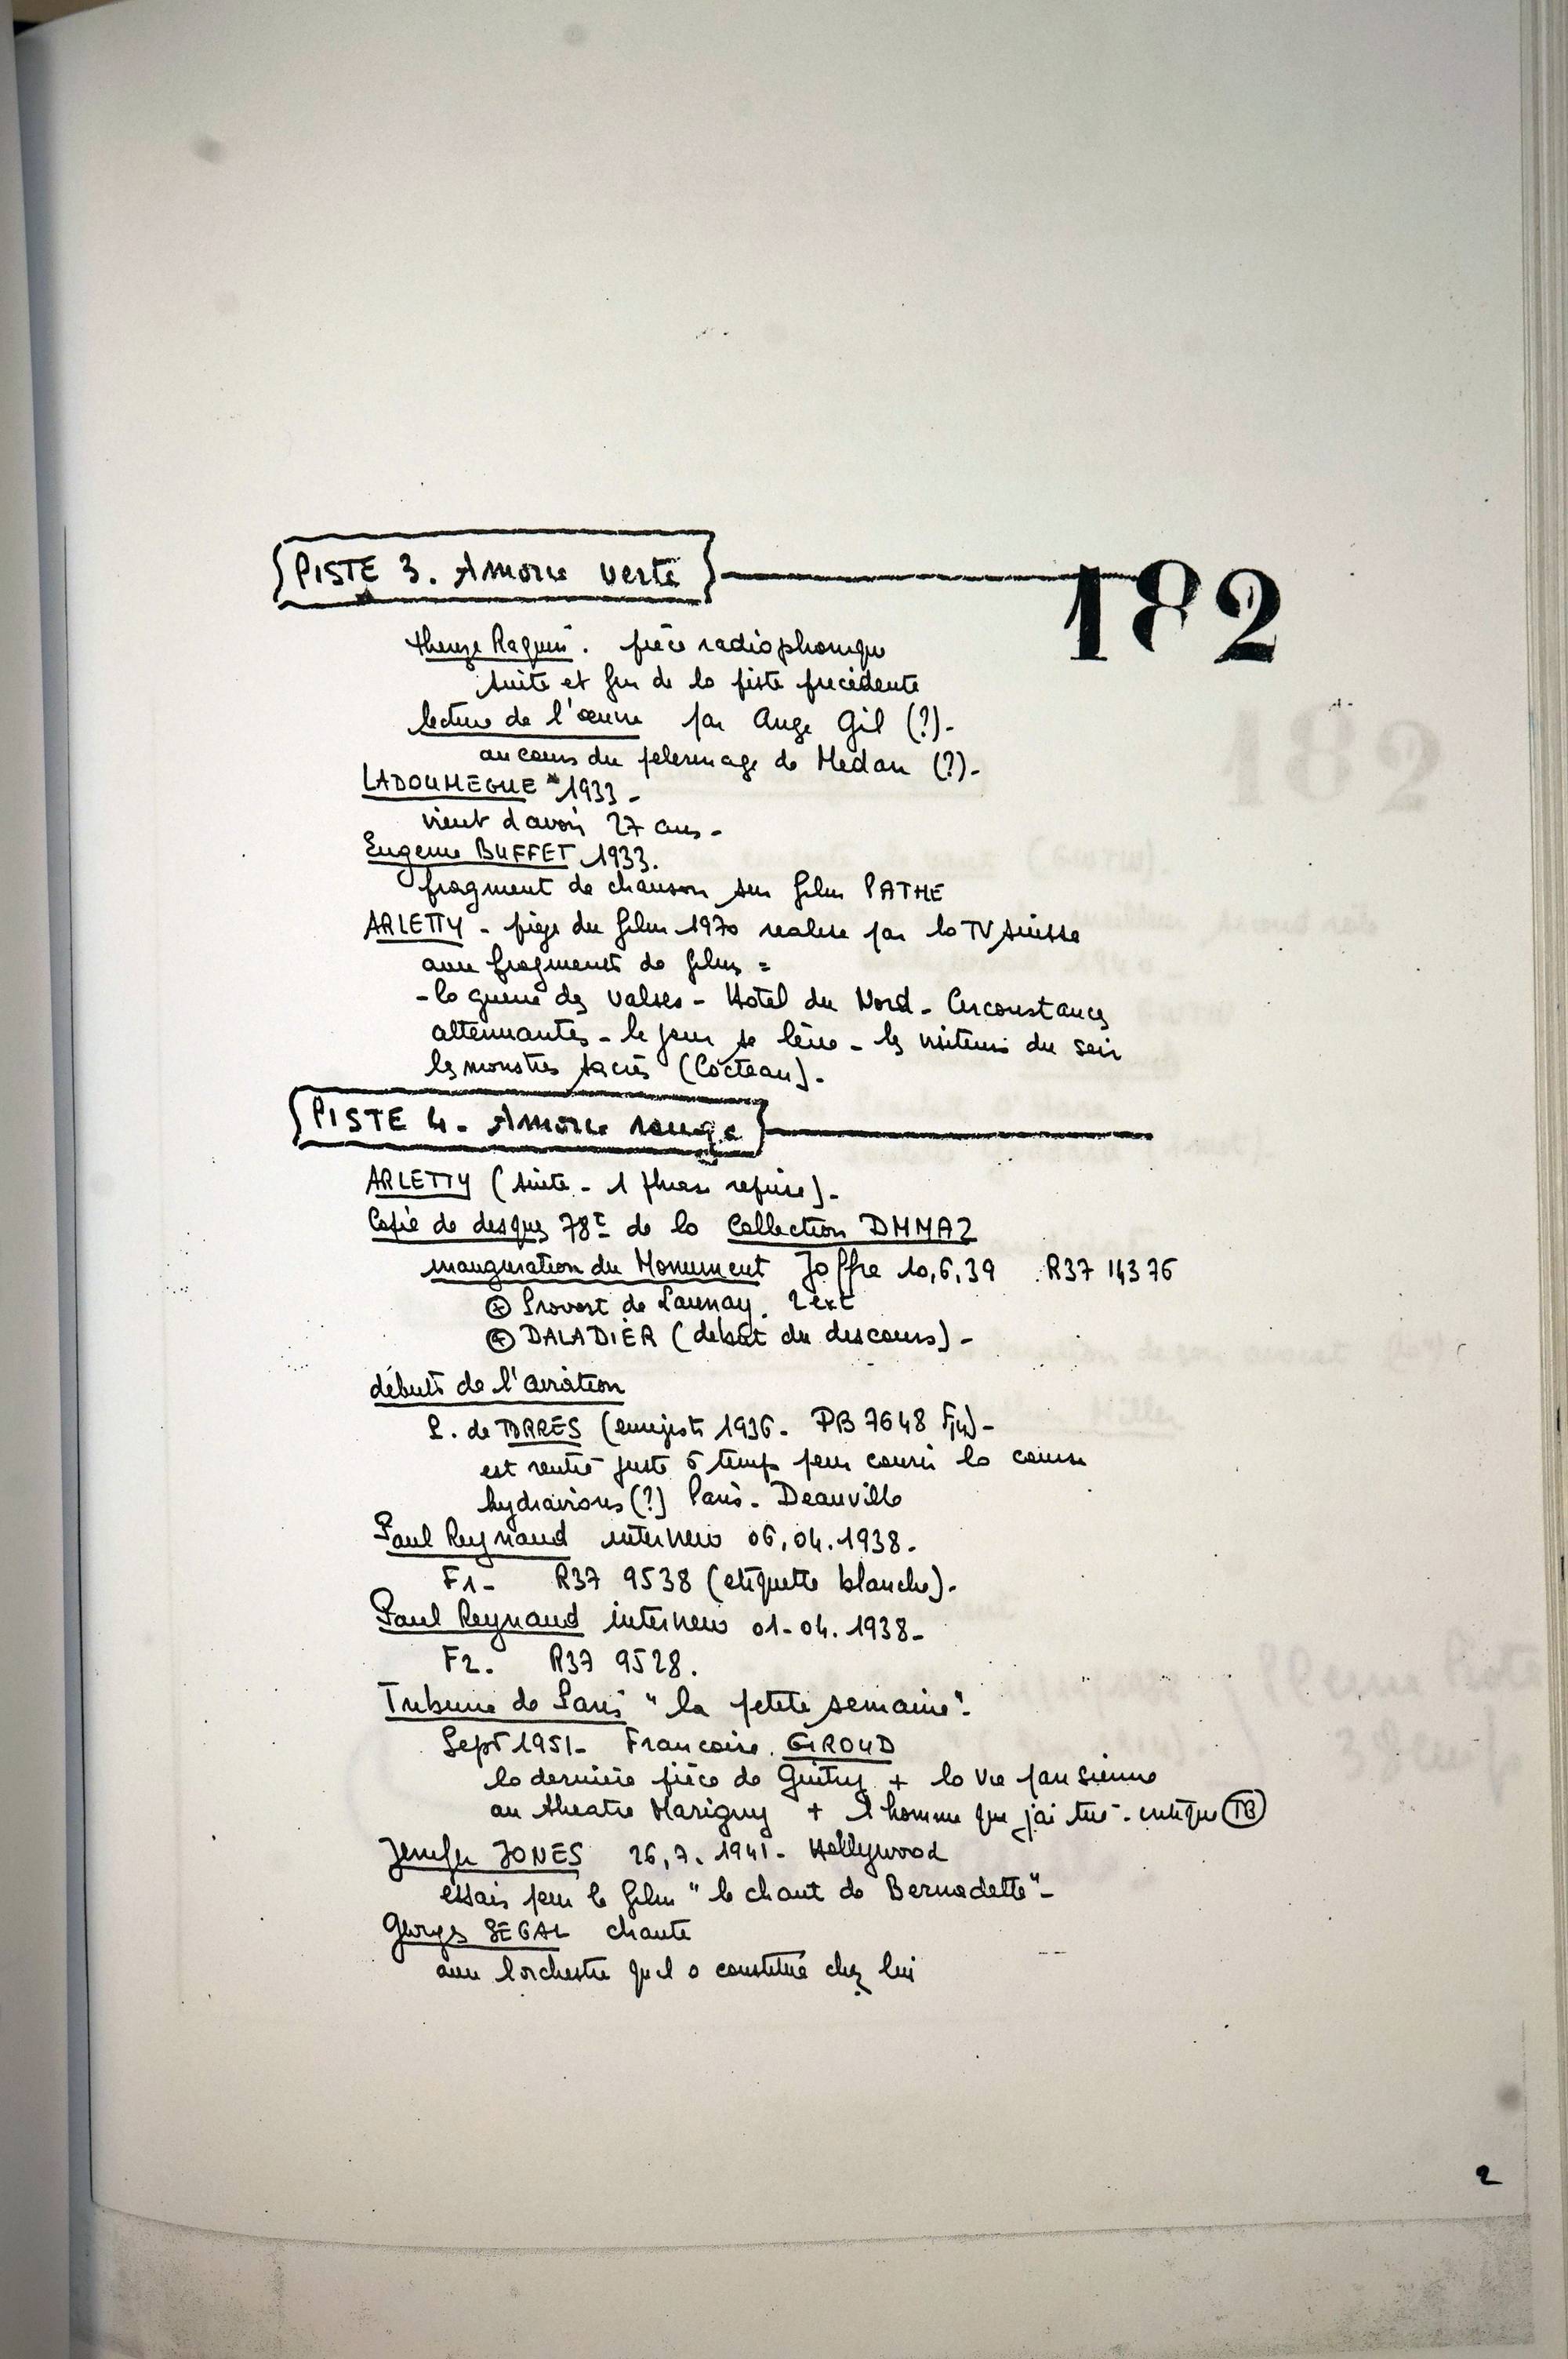 PISTE 3. Amorce verte
182
therese Raquin. pièce radiophonique
suite et fin de la piste precédente
lecture de l'œuvre par Ange Gil (?)-
au cours du pelerinage de Medan (?)-
LADOUMEGUE 1933-
vient d'avoir 27 ans-
Eugenie BUFFET 1933.
fragment de chanson sur film PATHE
ARLETTY - pige du film 1970 realise par la TV suisse
avec fragments de films =
- la guerre des valses - Hotel du Nord - Circonstances
attenuantes - le jour se lève - les visiteurs du soir
les monstres sacrés (Cocteau).
PISTE 4. Amorce rouge
ARLETTY (suite - 1 phrase reprise)-
Copie de disques 78t de la Collection DHMAZ
inauguration du Monument Joffre 10,6,39 R37 14376
+ Provost de Launay. 2 ext
+ DALADIER (debut du discours)-
débuts de l'aviation
L. de TORRES (enregist 1936- PB 7648
est rentré juste à temps pour courir la course
hydravions (?) Paris - Deauville
Paul Reynaud interview 06.04.1938-
F1- R37 9538 (etiquette blanche)-
Paul Reynaud interview 01-04.1938-
F2. R37 9528.
Tribune de Paris "la petite semaine".
Sept 1951- Francoise. GIROUD
la dernière pièce de Guitry + la vie parisienne
au theatre Marigny + l'homme que j'ai tué - critique TB
Jenifer JONES 26,7. 1941- Hollywood
essais pour le film "le chant de Bernadette"-
Georges SEGAL chante
avec l'orchestre qu'il a constitué chez lui
2